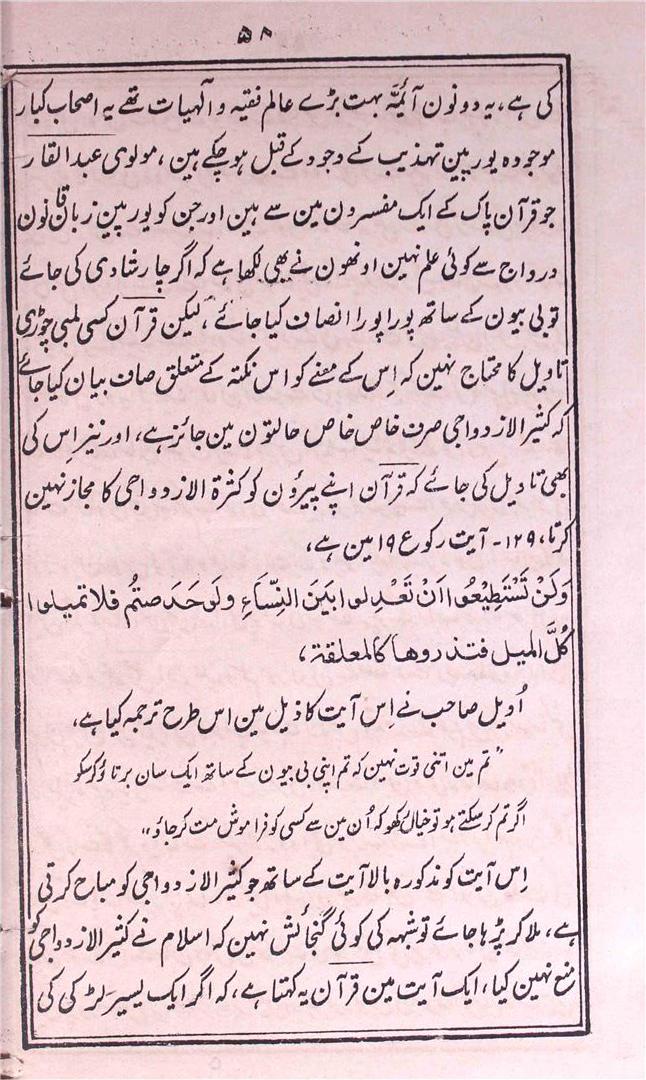 ۵۸
کی ہے، یہ دونون آئمّہ بہت بڑے عالم فقیہ و الٰہیات تھے یہ اصحاب کبار
موجودہ یورپین تہذیب کے وجود کے قبل ہو چکے ہین، مولوی عبد القادر
جو قرآن پاک کے ایک مفسر ون مین سے ہین اور جن کو یورپین زبان قانون
و رواج سے کوئی علم نہین او نھون نے بھی لکھا ہے کہ اگر چار شادی کی جائے
تو بی بیون کے ساتھ پورا پورا انصاف کیا جائے، لیکن قرآن کسی لمبی چوڑی
تاویل کا محتاج نہین کہ اِس کے معنے کو اس نکتہ کے متعلق صاف بیان کیا جائے
کہ کثیر الازدواجی صرف خاص خاص حالتون مین جائز ہے، اور نیز اِس کی
بھی تاویل کی جائے کہ قرآن اپنے پیرؤن کو کثرة الازدواجی کا مجاز نہین
کرتا، ۱۲۹۔ آیت رکوع ۱۹ مین ہے،
وَلَنْ تَسْتَطِيْعُوا اَنْ تَعْدِلوا بَيَنَ النِّسَاءِ ولَو حَدَ صتُم فلا تميلوا
كُلَّ الميل فتذروها كالمعلقة،
اُدیل صاحب نے اِس آیت کا ذیل مین اس طرح ترجمہ کیا ہے،
”تم مین اتنی قوت نہین کہ تم اپنی بی بیون کے ساتھ ایک سان برتاؤ کر سکو
اگر تم کر سکتے ہو تو خیال رکھو کہ اُن مین سے کسی کو فراموش مت کر جاؤ،،
اِس آیت کو مذکورہ بالا آیت کے ساتھ جو کثیر الازدواجی کو مباح کرتی
ہے، ملا کر پڑہا جائے تو شبہہ کی کوئی گنجائش نہین کہ اسلام نے کثیر الازدواجی کو
منع نہین کیا، ایک آیت مین قرآن یہ کہتا ہے، کہ اگر ایک یسیر لڑکی کی